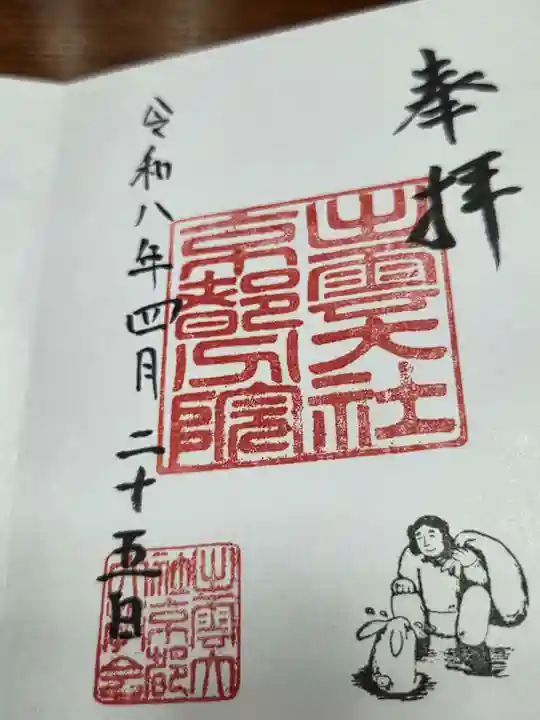 奉拝
出雲大社
京都分院
令和八年四月二十五日
出雲大
社京都